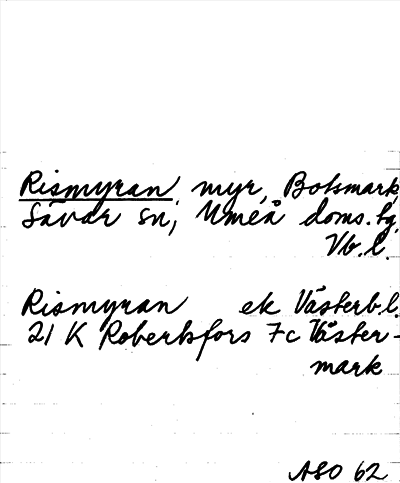 Rismyran, myr, Botsmark,
Sävar sn, Umeå doms.tg,
Vb.l.
Rismyran ek Västerb.l.
21 K Robertsfors 7c Väster-
mark
ASO 62